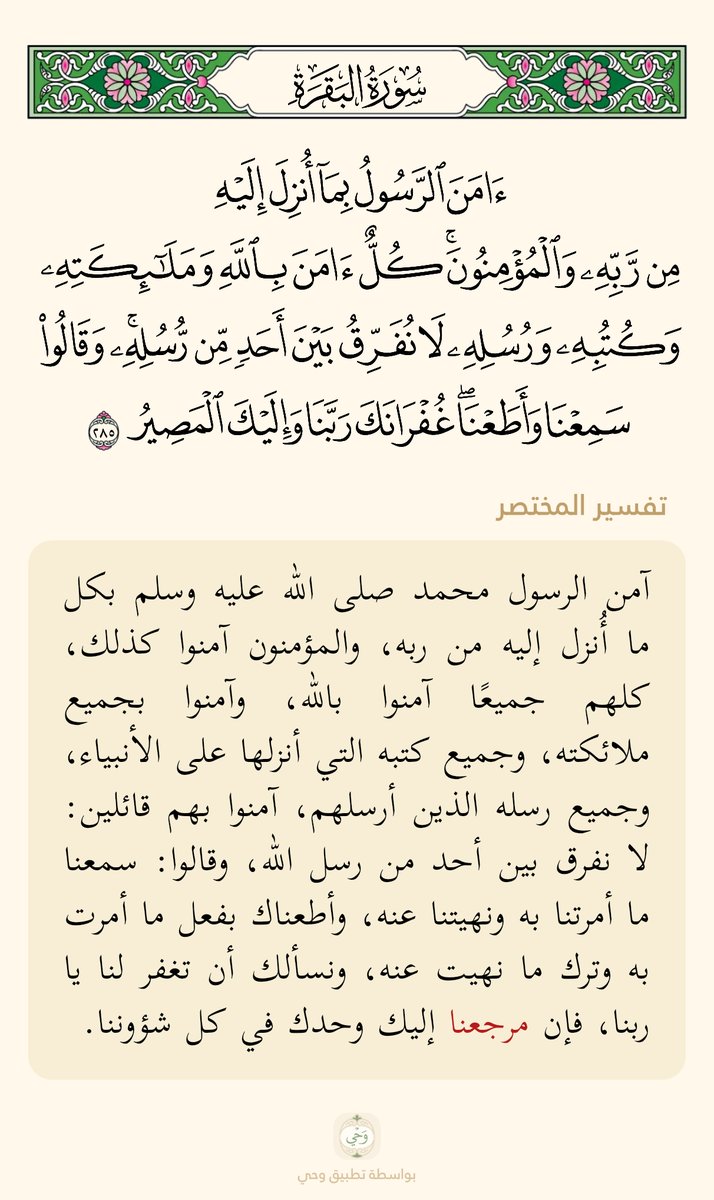 سُورَةُ البَقَرَةِ
ءَامَنَ ٱلرَّسُولُ بِمَآ أُنزِلَ إِلَيْهِ
مِن رَّبِّهِۦ وَٱلْمُؤْمِنُونَۚ كُلٌّ ءَامَنَ بِٱللَّهِ وَمَلَـٰٓئِكَتِهِۦ
وَكُتُبِهِۦ وَرُسُلِهِۦ لَا نُفَرِّقُ بَيْنَ أَحَدٍ مِّن رُّسُلِهِۦۚ وَقَالُوا۟
سَمِعْنَا وَأَطَعْنَاۖ غُفْرَانَكَ رَبَّنَا وَإِلَيْكَ ٱلْمَصِيرُ ٢٨٥
تفسير المختصر
آمن الرسول محمد صلى الله عليه وسلم بكل
ما أُنزل إليه من ربه، والمؤمنون آمنوا كذلك،
كلهم جميعًا آمنوا بالله، وآمنوا بجميع
ملائكته، وجميع كتبه التي أنزلها على الأنبياء،
وجميع رسله الذين أرسلهم، آمنوا بهم قائلين:
لا نفرق بين أحد من رسل الله، وقالوا: سمعنا
ما أمرتنا به ونهيتنا عنه، وأطعناك بفعل ما أمرت
به وترك ما نهيت عنه، ونسألك أن تغفر لنا يا
ربنا، فإن مرجعنا إليك وحدك في كل شؤوننا.
وَحْي
بواسطة تطبيق وحي